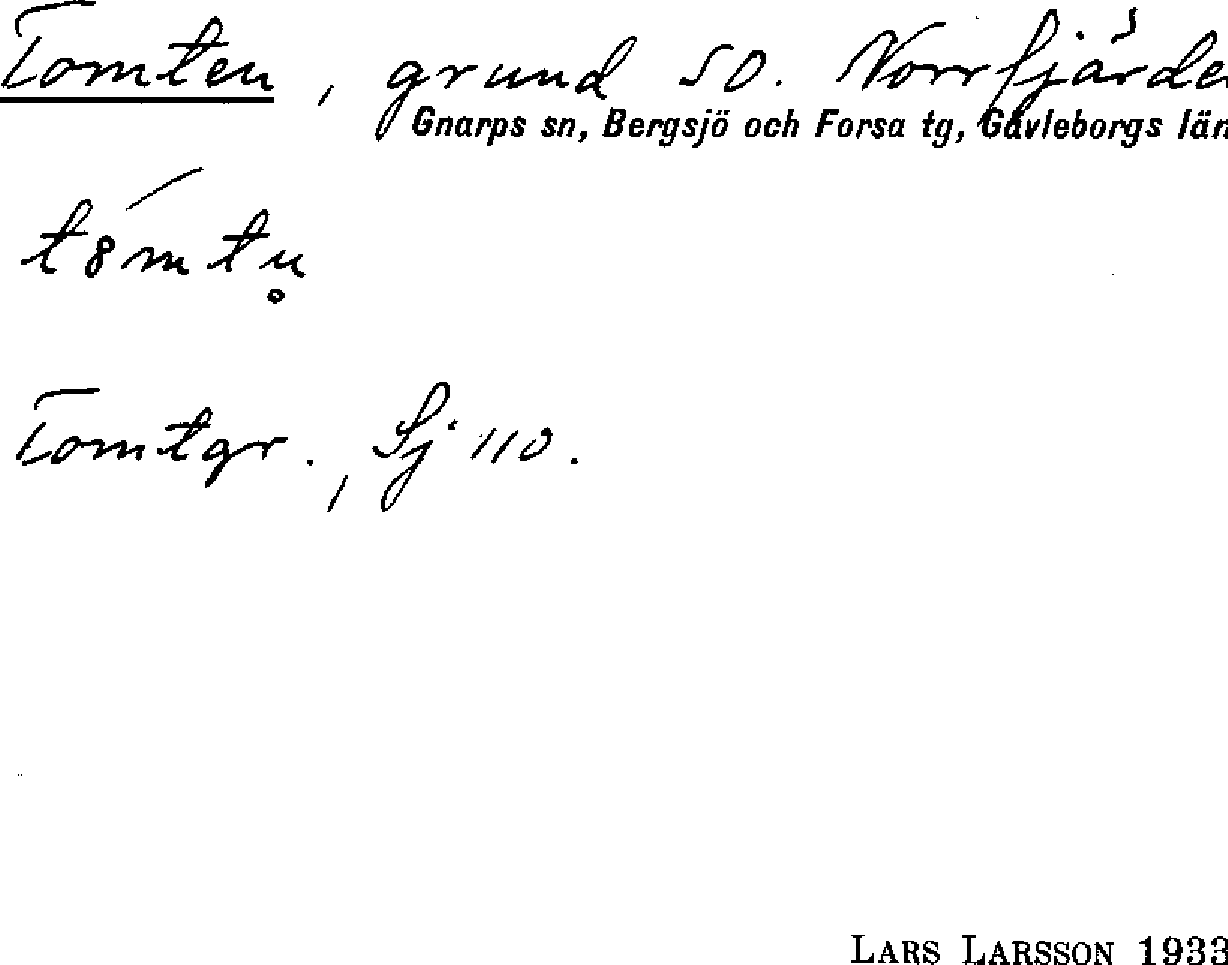 Tomten, grund SO. Norrfjärde
Gnarps sn, Bergsjö och Forsa tg, Gävleborgs län
t8mtn̥
Tomtgr., Sj 110.
LARS LARSSON 1933